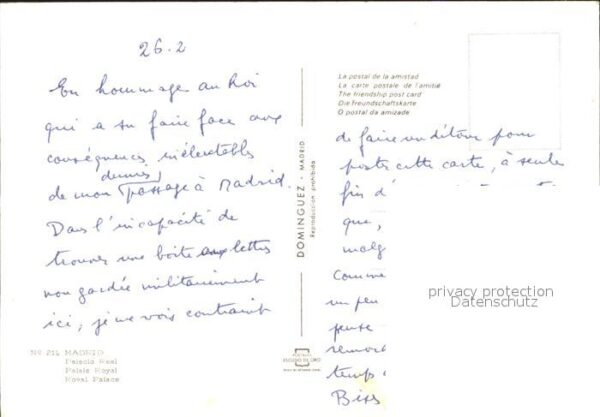 26.2
En hommage au Roi
qui a su faire face aux
conséquences inéluctables
dernier
de mon passage à Madrid.
Dans l'incapacité de
trouver une boîte aux lettres
non gardée militairement
ici, je me vois contraint
No 211 MADRID
Palacio Real
Palais Royal
Royal Palace
DOMINGUEZ - MADRID
Reproducción prohibida
La postal de la amistad
La carte postale de l'amitié
The friendship post card
Die Freundschaftskarte
O postal da amizade
de faire un détour pour
poster cette carte, à seule
fin d'
que,
malg
comme
un peu
pense
remort
temps
Bises
privacy protection
Datenschutz